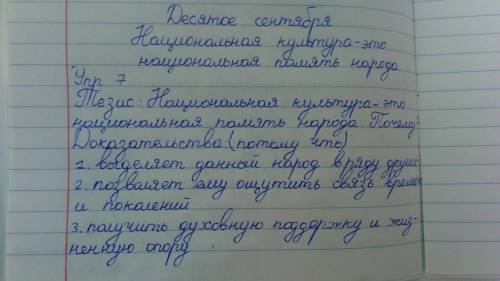 Десятое сентября
Национальная культура-это
национальная память народа
Упр 7
Тезис: Национальная культура-это
национальная память народа. Почему
Доказательства:(потому что)
1. выделяет данный народ в ряду других
2. позваляет ему ощутить связь времён
и поколений
3. получить духовную поддержку и жиз-
ненную опору .